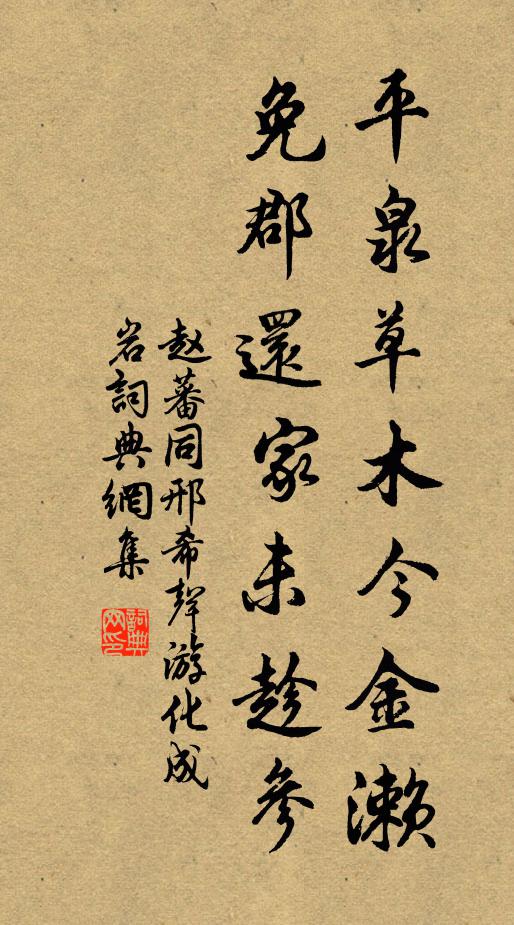 平泉草木今金濑
免郡還家未趁参
赵蕃同邢希聲游化成
岩詞典網集
詞典网印